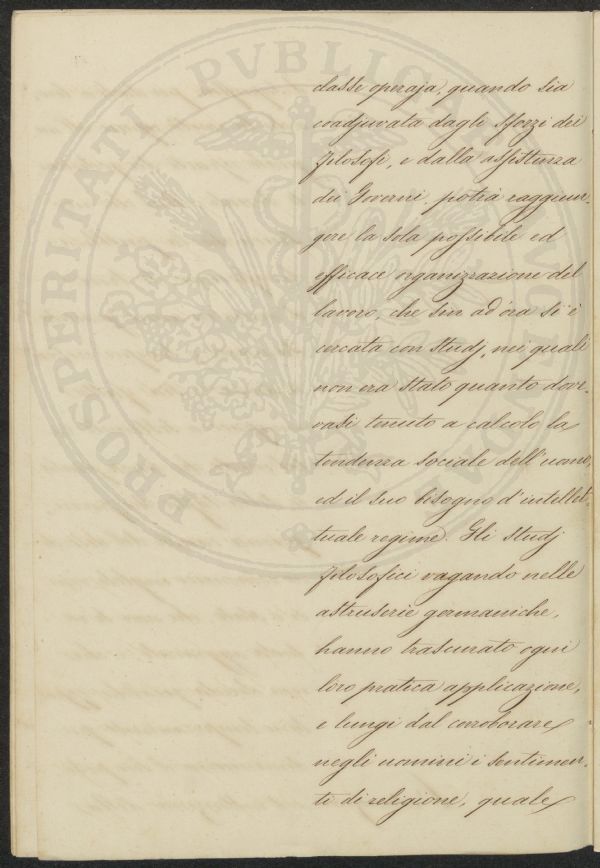 classe operaja, quando sia
coadjuvata dagli sforzi dei
filosofi, e dalla assistenza
dei Governi, potrà raggiun-
gere la sola possibile ed
efficace organizzazione del
lavoro, che sin ad'ora si è
cercata con studj, nei quali
non era stato quanto dove-
vasi tenuto a calcolo la
tendenza sociale dell'uomo,
ed il suo bisogno d'intellet-
tuale regime. Gli studj
filosofici vagando nelle
astruserie germaniche,
hanno trascurato ogni
loro pratica applicazione,
e lungi dal corroborare
negli uomini i sentimen-
ti di religione, quale
PROSPERITATI PVBLICAE